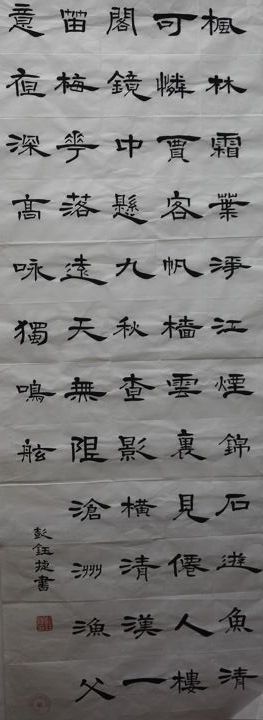 楓林霜葉淨江煙錦石遊魚清
可憐賈客帆檣雲裏見僊人樓
閣鏡中懸九秋查影橫清漢一
笛梅花落遠天無限滄洲漁父
意夜深高詠獨鳴舷
彭鈺捷書